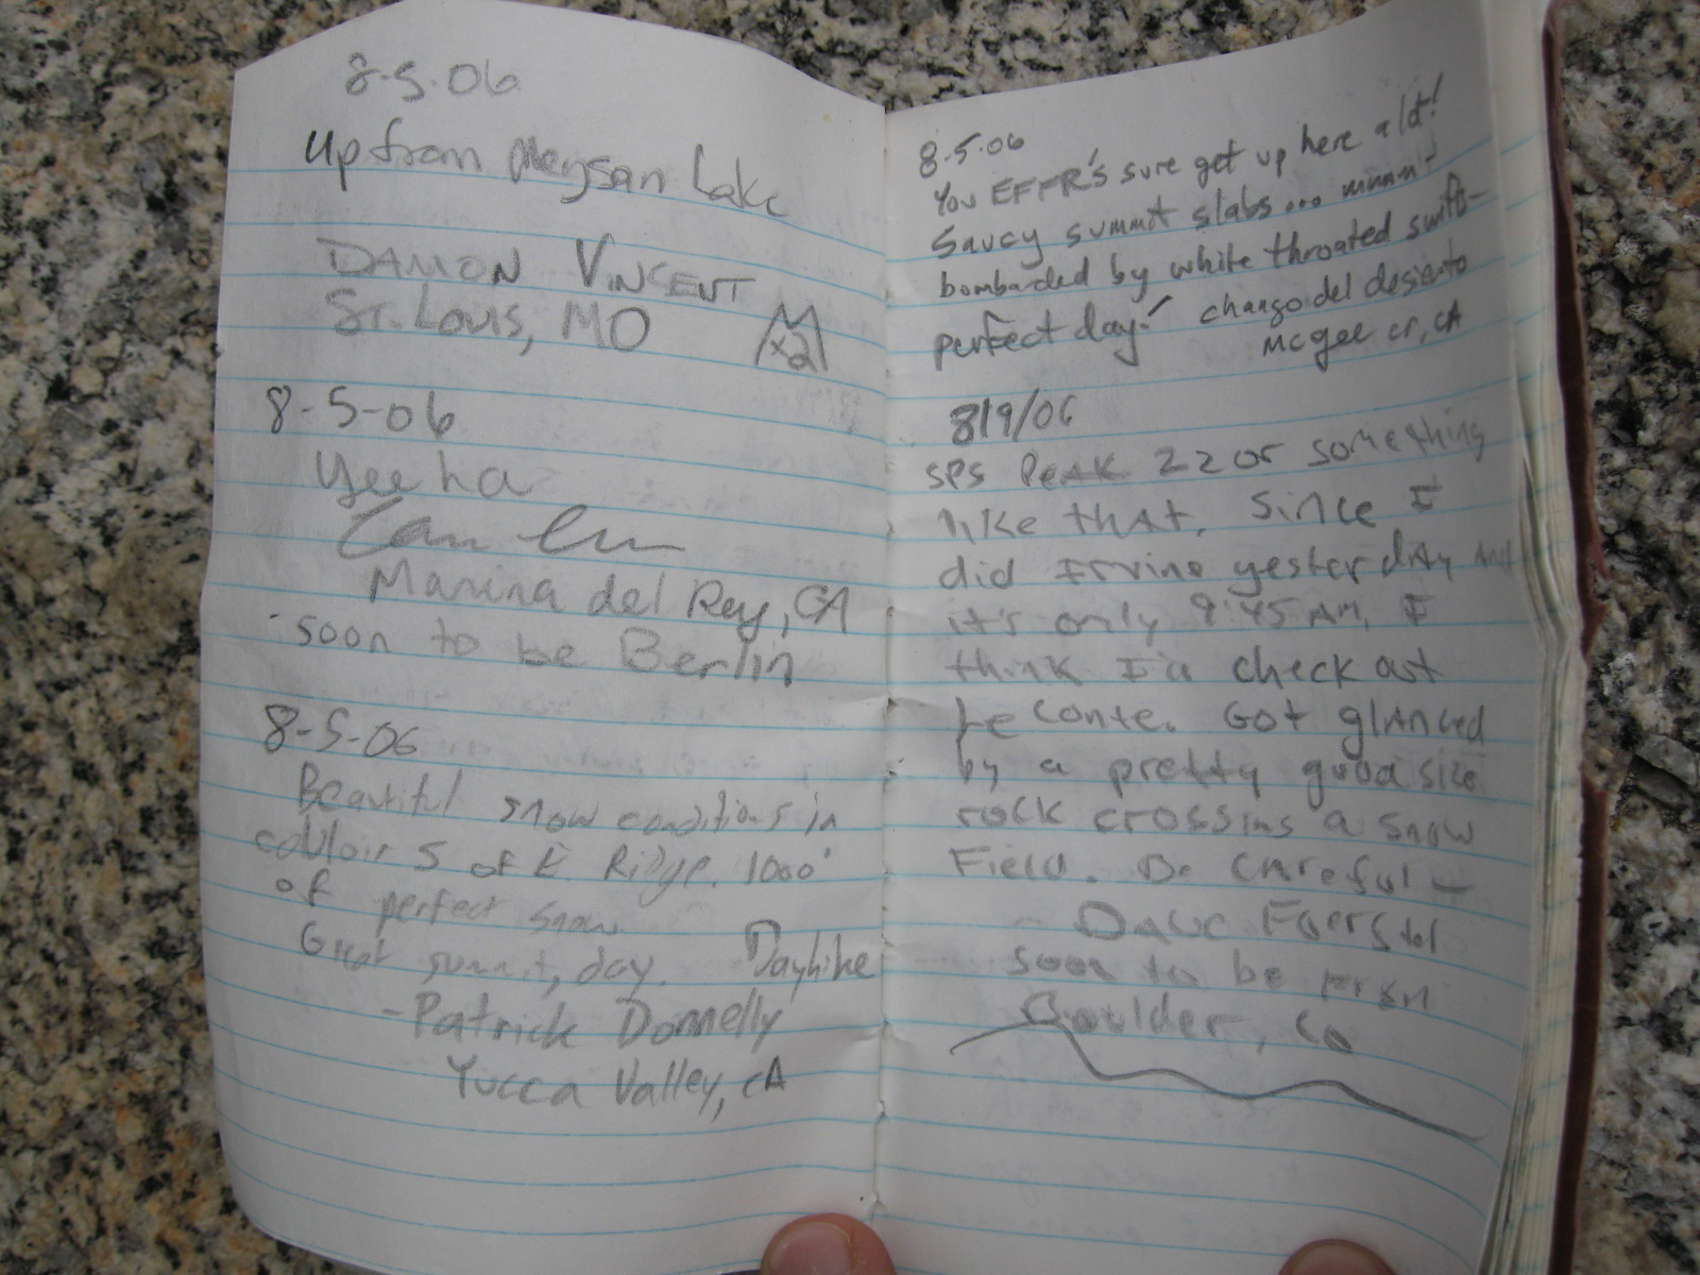 8-5-06
Up from Meysan Lake
DAMON VINCENT
ST. LOUIS, MO
x2
8-5-06
Yee ha
Marina del Rey, CA
- soon to be Berlin
8-5-06
Beautiful snow conditions in
couloir S of E. Ridge. 1000'
of perfect snow
Great summit, day. Dayhike
- Patrick Donnelly
Yucca Valley, CA
8.5.06
You EFFR'S sure get up here a lot!
Saucy summit slabs... mmm!
bombarded by white throated swifts -
perfect day! chango del desierto
McGee Cr, CA
8/9/06
SPS PEAK 22 or something
like that. Since I
did Irvine yesterday And
it's only 9:45 AM, I
think I'll check out
Le Conte. Got glanced
by a pretty good size
rock crossing a snow
Field. Be careful -
Dave
soon to be from
Boulder, Co